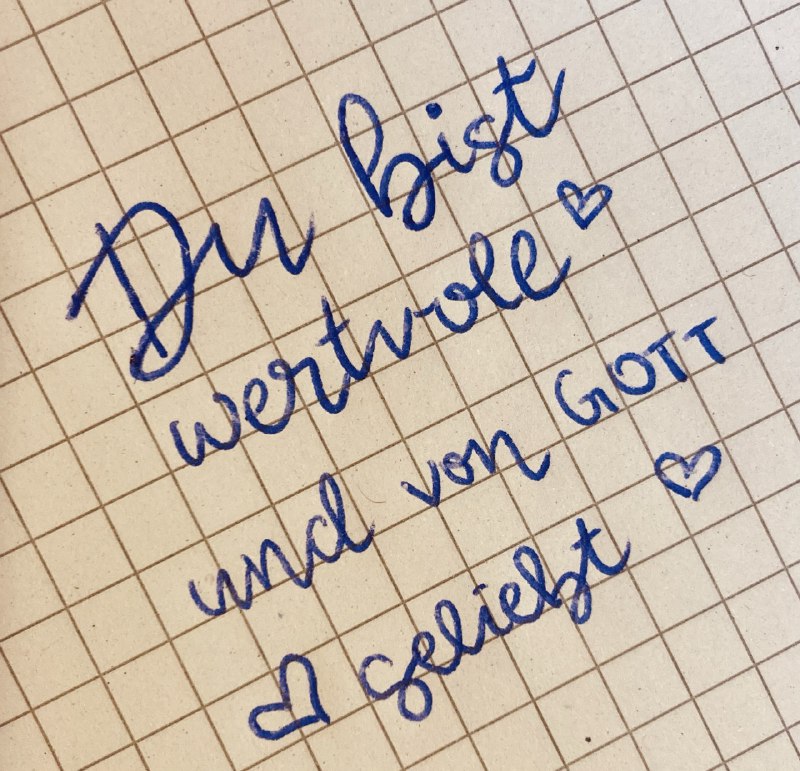 Du bist
wertvoll ♡
und von GOTT
♡ geliebt ♡